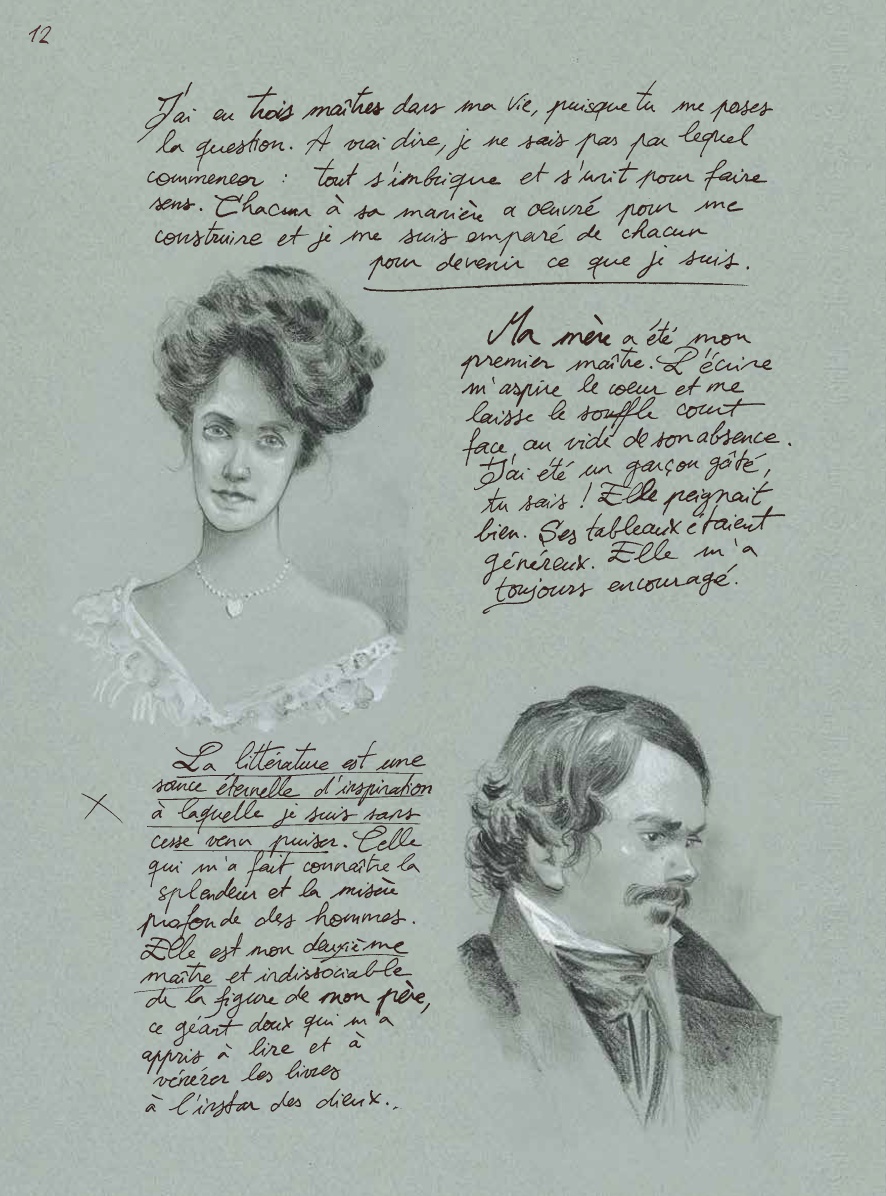 12
J'ai eu trois maîtres dans ma vie, puisque tu me poses
la question. A vrai dire, je ne sais pas par lequel
commencer : tout s'imbrique et s'unit pour faire
sens. Chacun à sa manière a oeuvré pour me
construire et je me suis emparé de chacun
pour devenir ce que je suis.
Ma mère a été mon
premier maître. L'écrire
m'aspire le coeur et me
laisse le souffle court
face au vide de son absence.
J'ai été un garçon gâté,
tu sais ! Elle peignait
bien. Ses tableaux étaient
généreux. Elle m'a
toujours encouragé.
La littérature est une
source éternelle d'inspiration
à laquelle je suis sans
cesse venu puiser. Celle
qui m'a fait connaître la
splendeur et la misère
profonde des hommes.
Elle est mon deuxième
maître et indissociable
de la figure de mon père,
ce géant doux qui m'a
appris à lire et à
vénérer les livres
à l'instar des dieux..